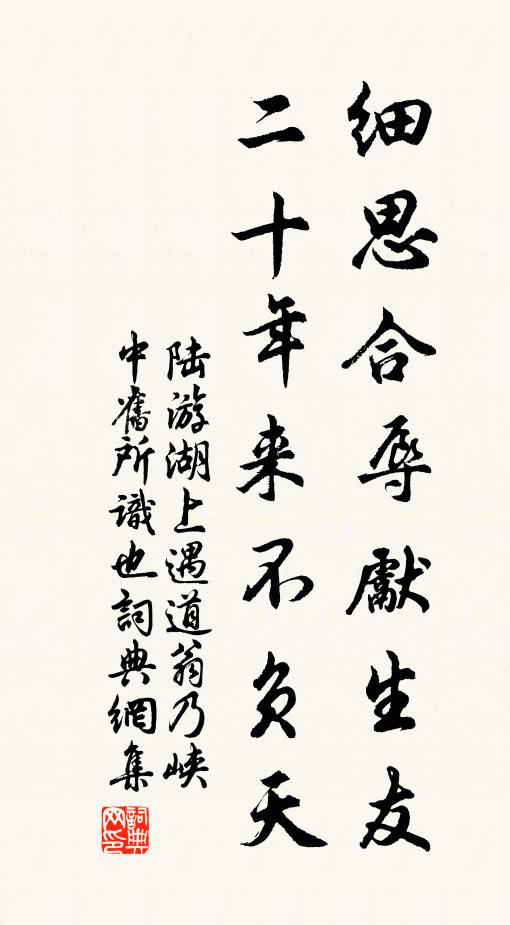 细思合辱獻生友
二十年来不负天
陆游湖上遇道翁乃峡
中舊所識也詞典網集
詞典网印